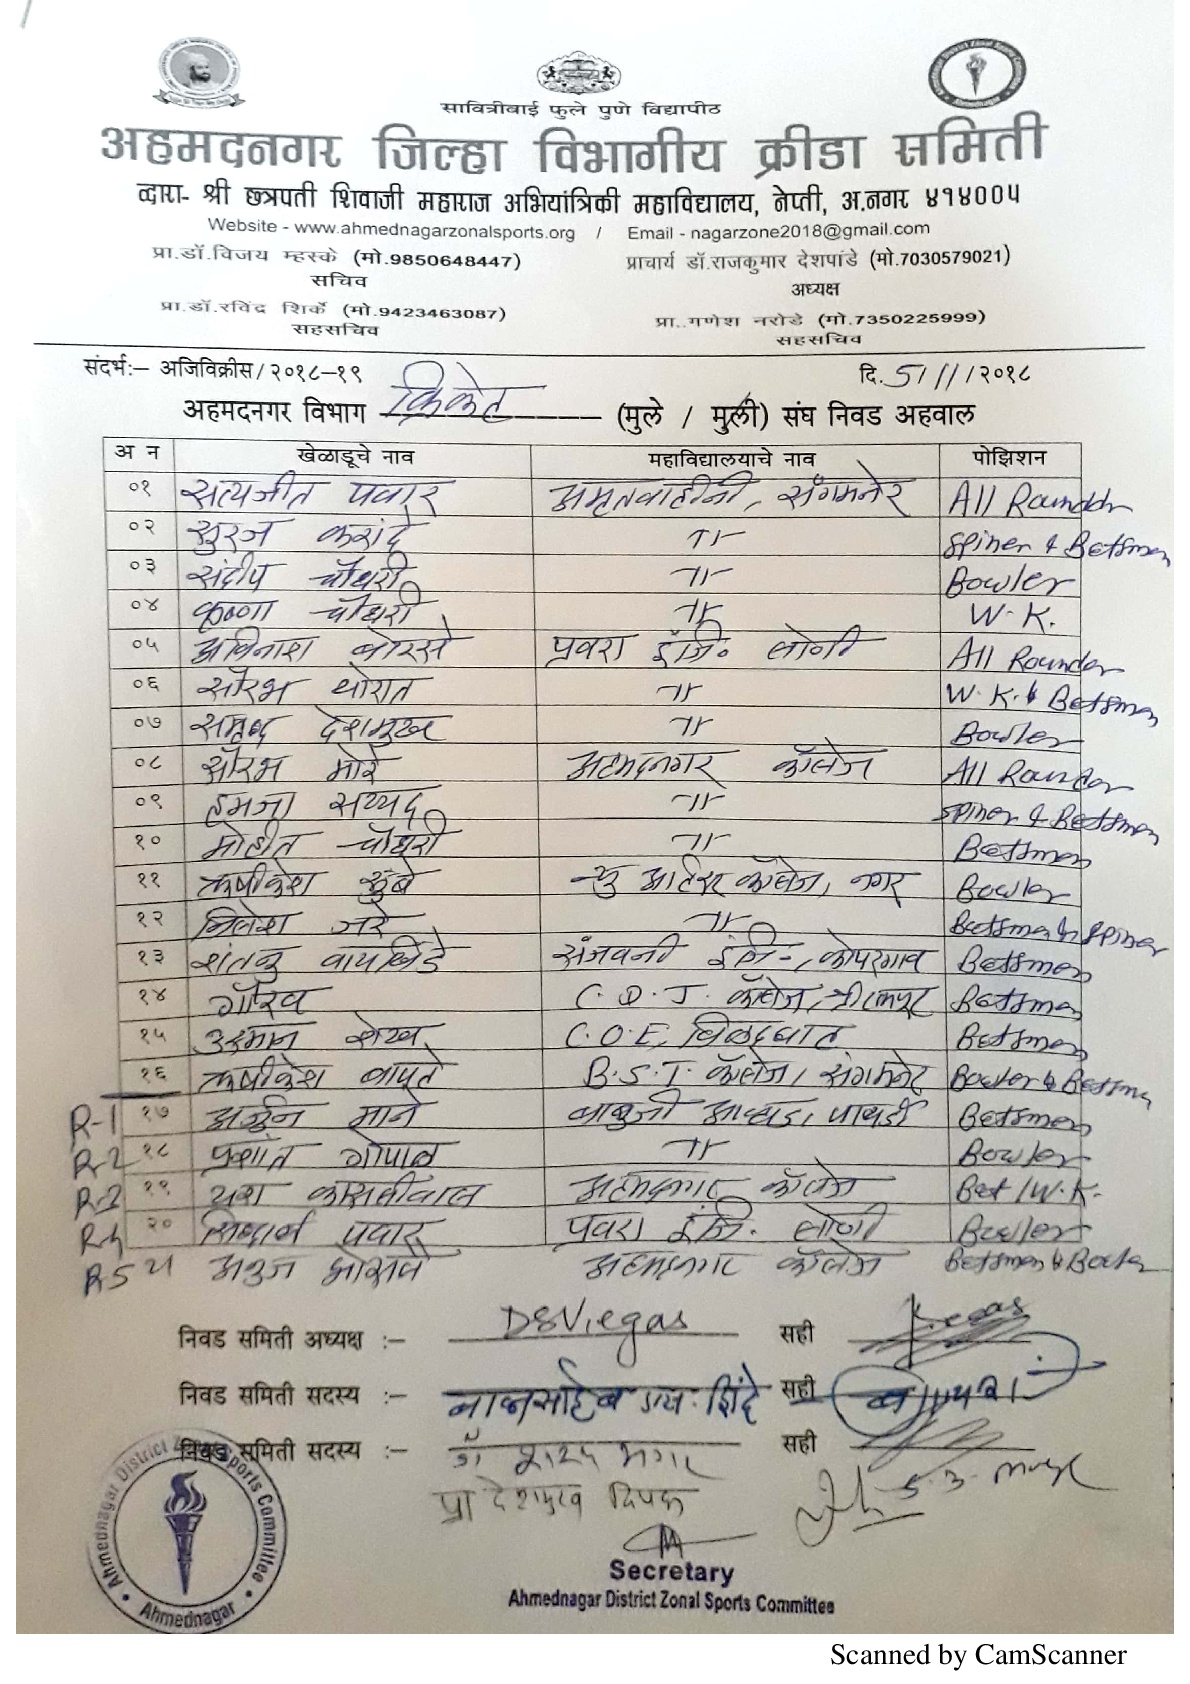 सावित्रीबाई फुले पुणे विद्यापीठ
अहमदनगर जिल्हा विभागीय क्रीडा समिती
व्दारा- श्री छत्रपती शिवाजी महाराज अभियांत्रिकी महाविद्यालय, नेप्ती, अ.नगर ४१४००५
Website - www.ahmednagarzonalsports.org / Email - nagarzone2018@gmail.com
प्रा.डॉ.विजय म्हस्के (मो.9850648447) प्राचार्य डॉ.राजकुमार देशपांडे (मो.7030579021)
सचिव अध्यक्ष
प्रा.डॉ.रविंद्र शिर्के (मो.9423463087) प्रा..गणेश नरोडे (मो.7350225999)
सहसचिव सहसचिव
संदर्भ:– अजिविक्रीस/२०१८–१९ दि. 5/11/२०१८
अहमदनगर विभाग क्रिकेट (मुले / मुली) संघ निवड अहवाल
अ न खेळाडूचे नाव महाविद्यालयाचे नाव पोझिशन
०१ सत्यजीत पवार अमृतवाहीनी, संगमनेर All Rounder
०२ सुरज करांदे –11– Spiner & Betsmen
०३ संदीप चौधरी –11– Bowler
०४ कृष्णा चौधरी –11– W.K.
०५ अविनाश बोरसे प्रवरा इंजि. लोणी All Rounder
०६ सौरभ थोरात –11– W.K. & Betsmen
०७ समृद्ध देशमुख –11– Bowler
०८ सौरभ मोरे अहमदनगर कॉलेज All Rounder
०९ हमजा सय्यद –11– Spiner & Betsmen
१० मोहीत चौधरी –11– Betsmen
११ ऋषीकेश झुंबे न्यु आर्टस कॉलेज, नगर Bowler
१२ निलेश जरे –11– Betsmen & Spiner
१३ शंतनु वायखिंडे संजवनी इंजि–, कोपरगाव Betsmen
१४ गौरव C.D.J. कॉलेज, श्रीरामपूर Betsmen
१५ उस्मान शेख C.O.E, विळदघाट Betsmen
१६ ऋषीकेश वापुते B.S.T. कॉलेज, संगमनेर Bowler & Betsmen
R-1 १७ अर्जुन माने बाबुजी आव्हाड, पाथर्डी Betsmen
R-2 १८ प्रशांत गोपाल –11– Bowler
R-3 १९ यश कासलीवाल अहमदनगर कॉलेज Bet/W.K.
R-4 २० सिध्दार्थ पवार प्रवरा इंजि. लोणी Bowler
R-5 २१ अनुज भोसले अहमदनगर कॉलेज Betsmen & Bowler
निवड समिती अध्यक्ष :– DSViegas सही
निवड समिती सदस्य :– नानासाहेब एस. शिंदे सही
निवड समिती सदस्य :– डॉ शरद मगर सही
प्रा देशमुख दिपक
Secretary
Ahmednagar District Zonal Sports Committee
Ahmednagar District Zonal Sports Committee
Ahmednagar
Scanned by CamScanner